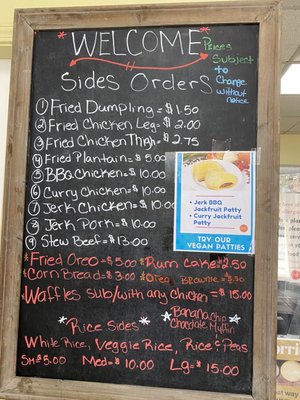 *WELCOME*
Prices
Subject
to
Change
without
notice
Sides Orders
① Fried Dumpling = $1.50
② Fried Chicken Leg = $2.00
③ Fried Chicken Thgh = $2.75
④ Fried Plantain = $5.00
⑤ BBQ Chicken = $10.00
⑥ Curry Chicken = $10.00
⑦ Jerk Chicken = $10.00
⑧ Jerk Pork = $10.00
⑨ Stew Beef = $13.00
• Jerk BBQ
Jackfruit Patty
• Curry Jackfruit
Patty
TRY OUR
VEGAN PATTIES
*Fried Oreo = $5.00 *Rum Cake = $2.50
*Corn Bread = $3.00 *Oreo Brownie =
*Waffles sub/with any Chicken = $15.00
*Rice Sides*
*Banana Chip
Chocolate Muffin
White Rice, Veggie Rice, Rice & Peas
SM $5.00 Med = $10.00 Lg = $15.00